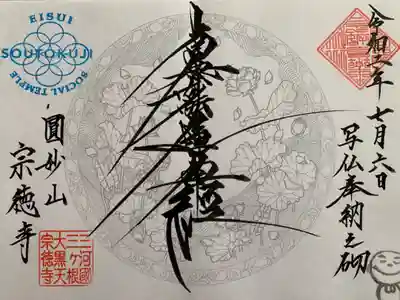 令和二年 七月六日
写仏奉納之砌
南無妙法蓮華経
EISUI
SOUTOKUJI
SOCIAL TEMPLE
圓妙山
宗徳寺
三河國
三ヶ根
大黒天
宗徳寺